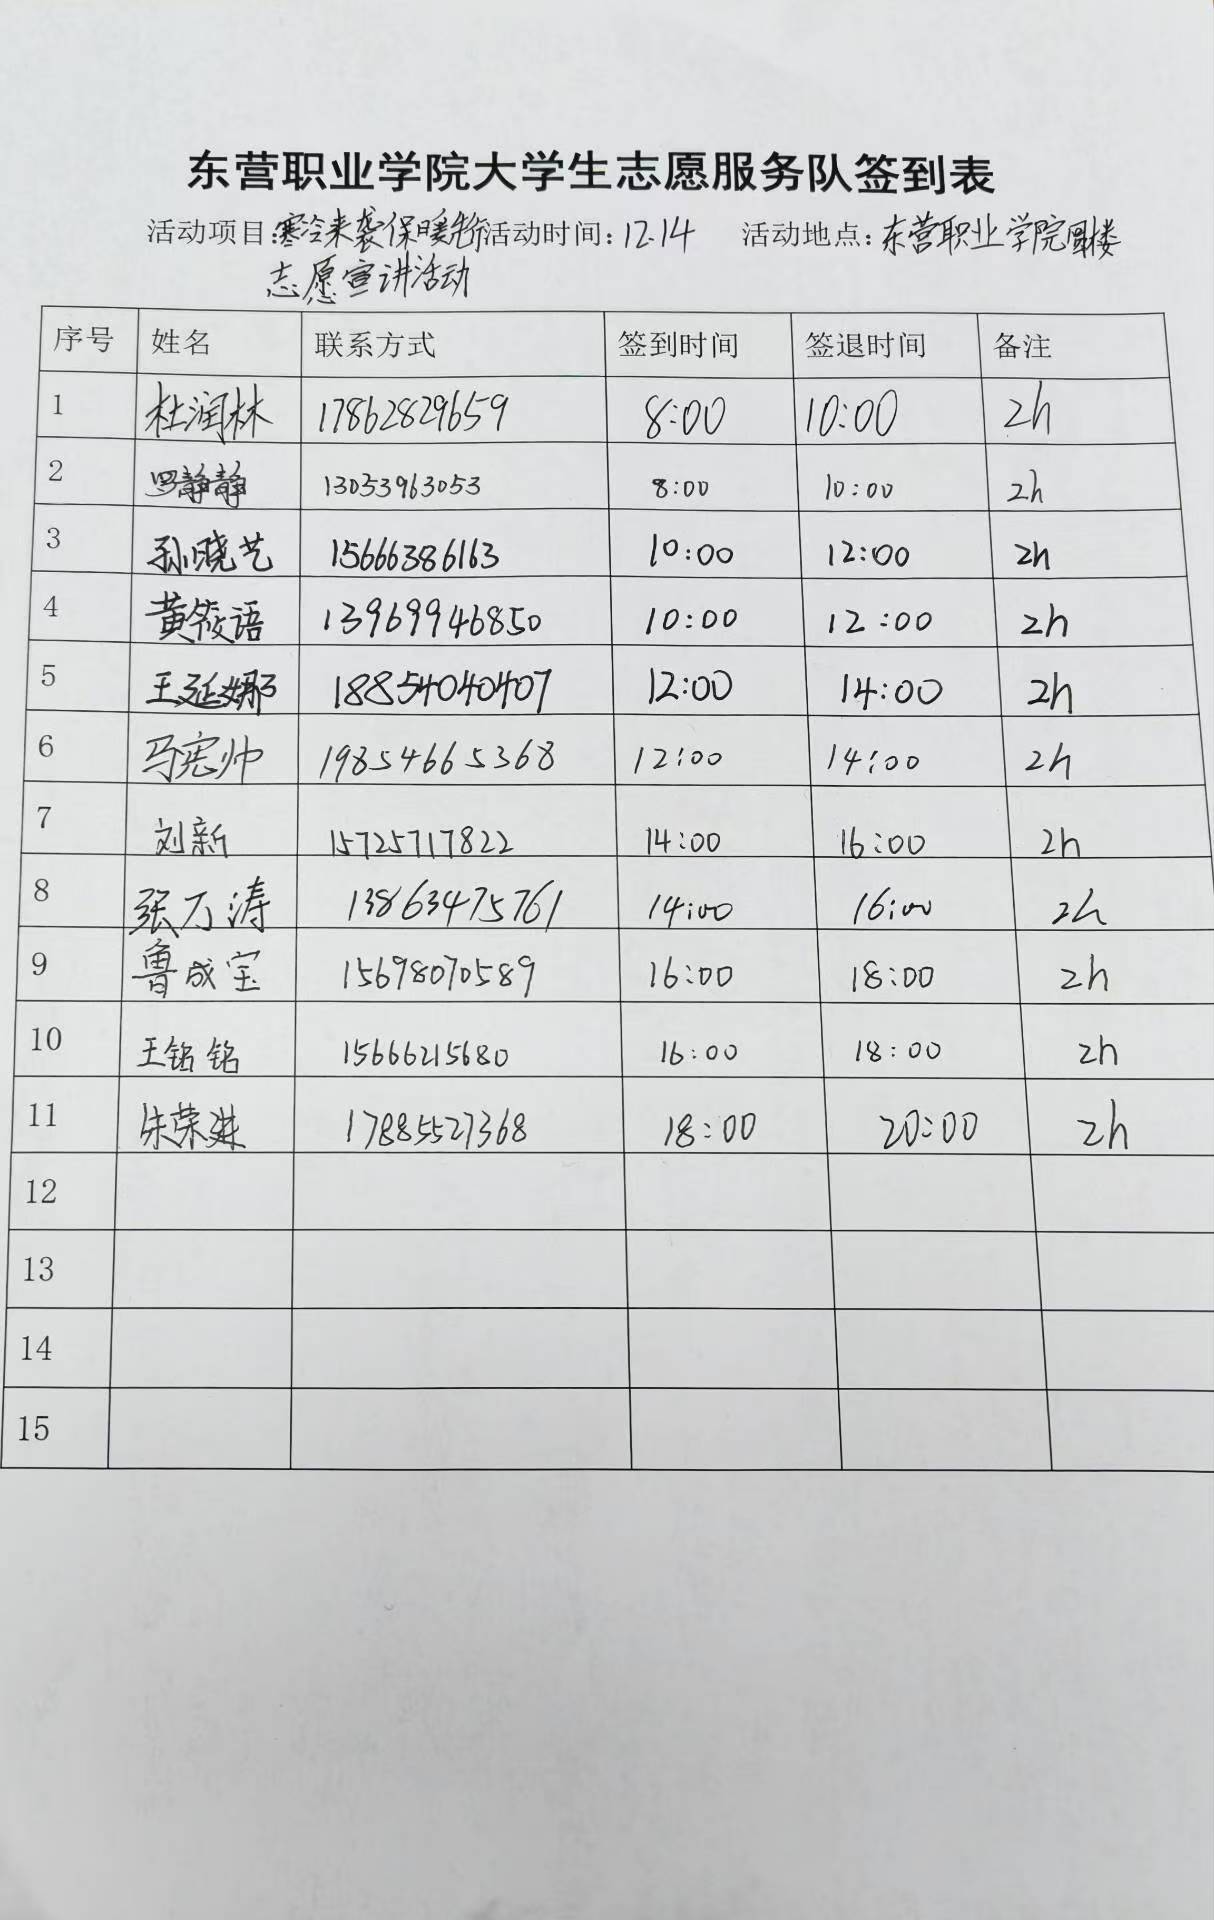 东营职业学院大学生志愿服务队签到表
活动项目:寒冷来袭保暖先行 活动时间:12.14 活动地点:东营职业学院图楼
志愿宣讲活动
序号 姓名 联系方式 签到时间 签退时间 备注
1 杜润林 17862829659 8:00 10:00 2h
2 罗静静 13053963053 8:00 10:00 2h
3 孙晓艺 15666386163 10:00 12:00 2h
4 黄筱语 13969946850 10:00 12:00 2h
5 王延娜 18854040407 12:00 14:00 2h
6 马宪帅 19854665368 12:00 14:00 2h
7 刘新 15725717822 14:00 16:00 2h
8 张万涛 13863475761 14:00 16:00 2h
9 鲁成宝 15698070589 16:00 18:00 2h
10 王铭铭 15666215680 16:00 18:00 2h
11 17885527368 18:00 20:00 2h
12
13
14
15